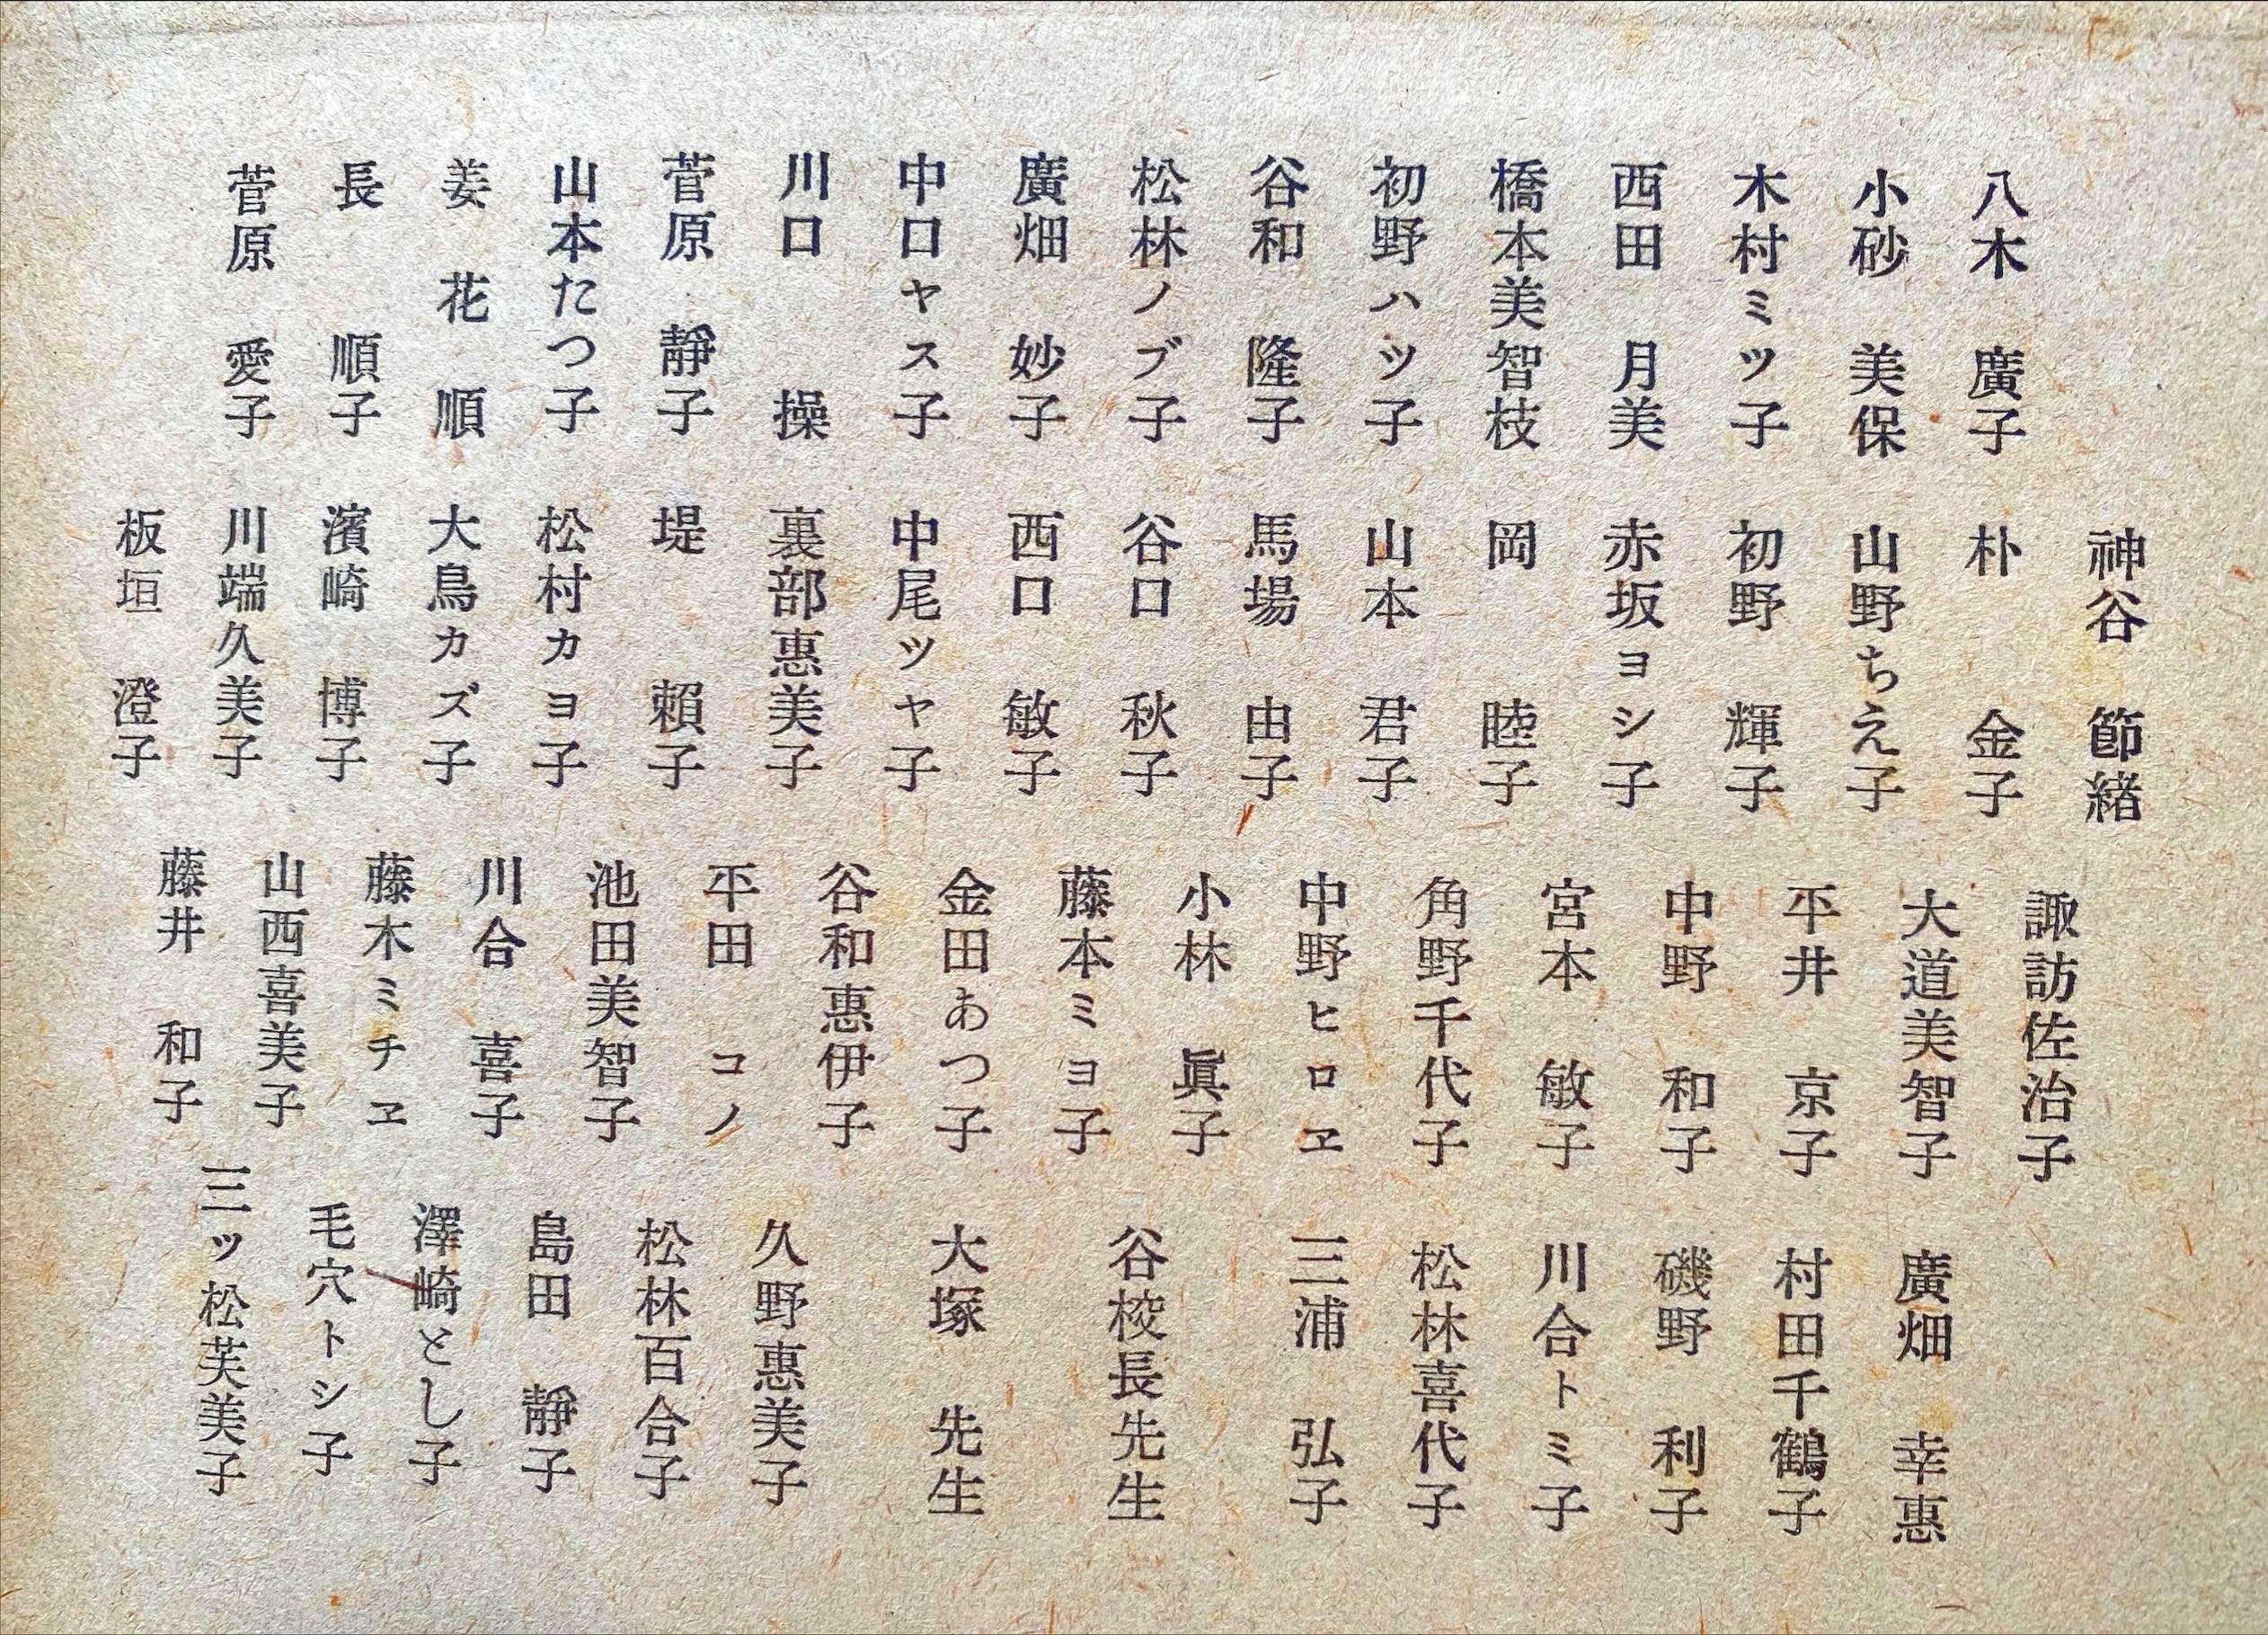 八木 廣子
小砂 美保
木村ミツ子
西田 月美
橋本美智枝
初野ハツ子
谷和 隆子
松林ノブ子
廣畑 妙子
中口ヤス子
川口 操
菅原 靜子
山本たつ子
姜 花 順
長 順子
菅原 愛子
神谷 節緒
朴 金子
山野ちえ子
初野 輝子
赤坂ヨシ子
岡 睦子
山本 君子
馬場 由子
谷口 秋子
西口 敏子
中尾ツヤ子
裏部惠美子
堤 頼子
松村カヨ子
大鳥カズ子
濱崎 博子
川端久美子
板垣 澄子
諏訪佐治子
大道美智子
平井 京子
中野 和子
宮本 敏子
角野千代子
中野ヒロヱ
小林 眞子
藤本ミヨ子
金田あつ子
谷和惠伊子
平田 コノ
池田美智子
川合 喜子
藤木ミチヱ
山西喜美子
藤井 和子
廣畑 幸惠
村田千鶴子
磯野 利子
川合トミ子
松林喜代子
三浦 弘子
谷校長先生
大塚 先生
久野惠美子
松林百合子
島田 靜子
澤崎とし子
毛穴トシ子
三ツ松芙美子